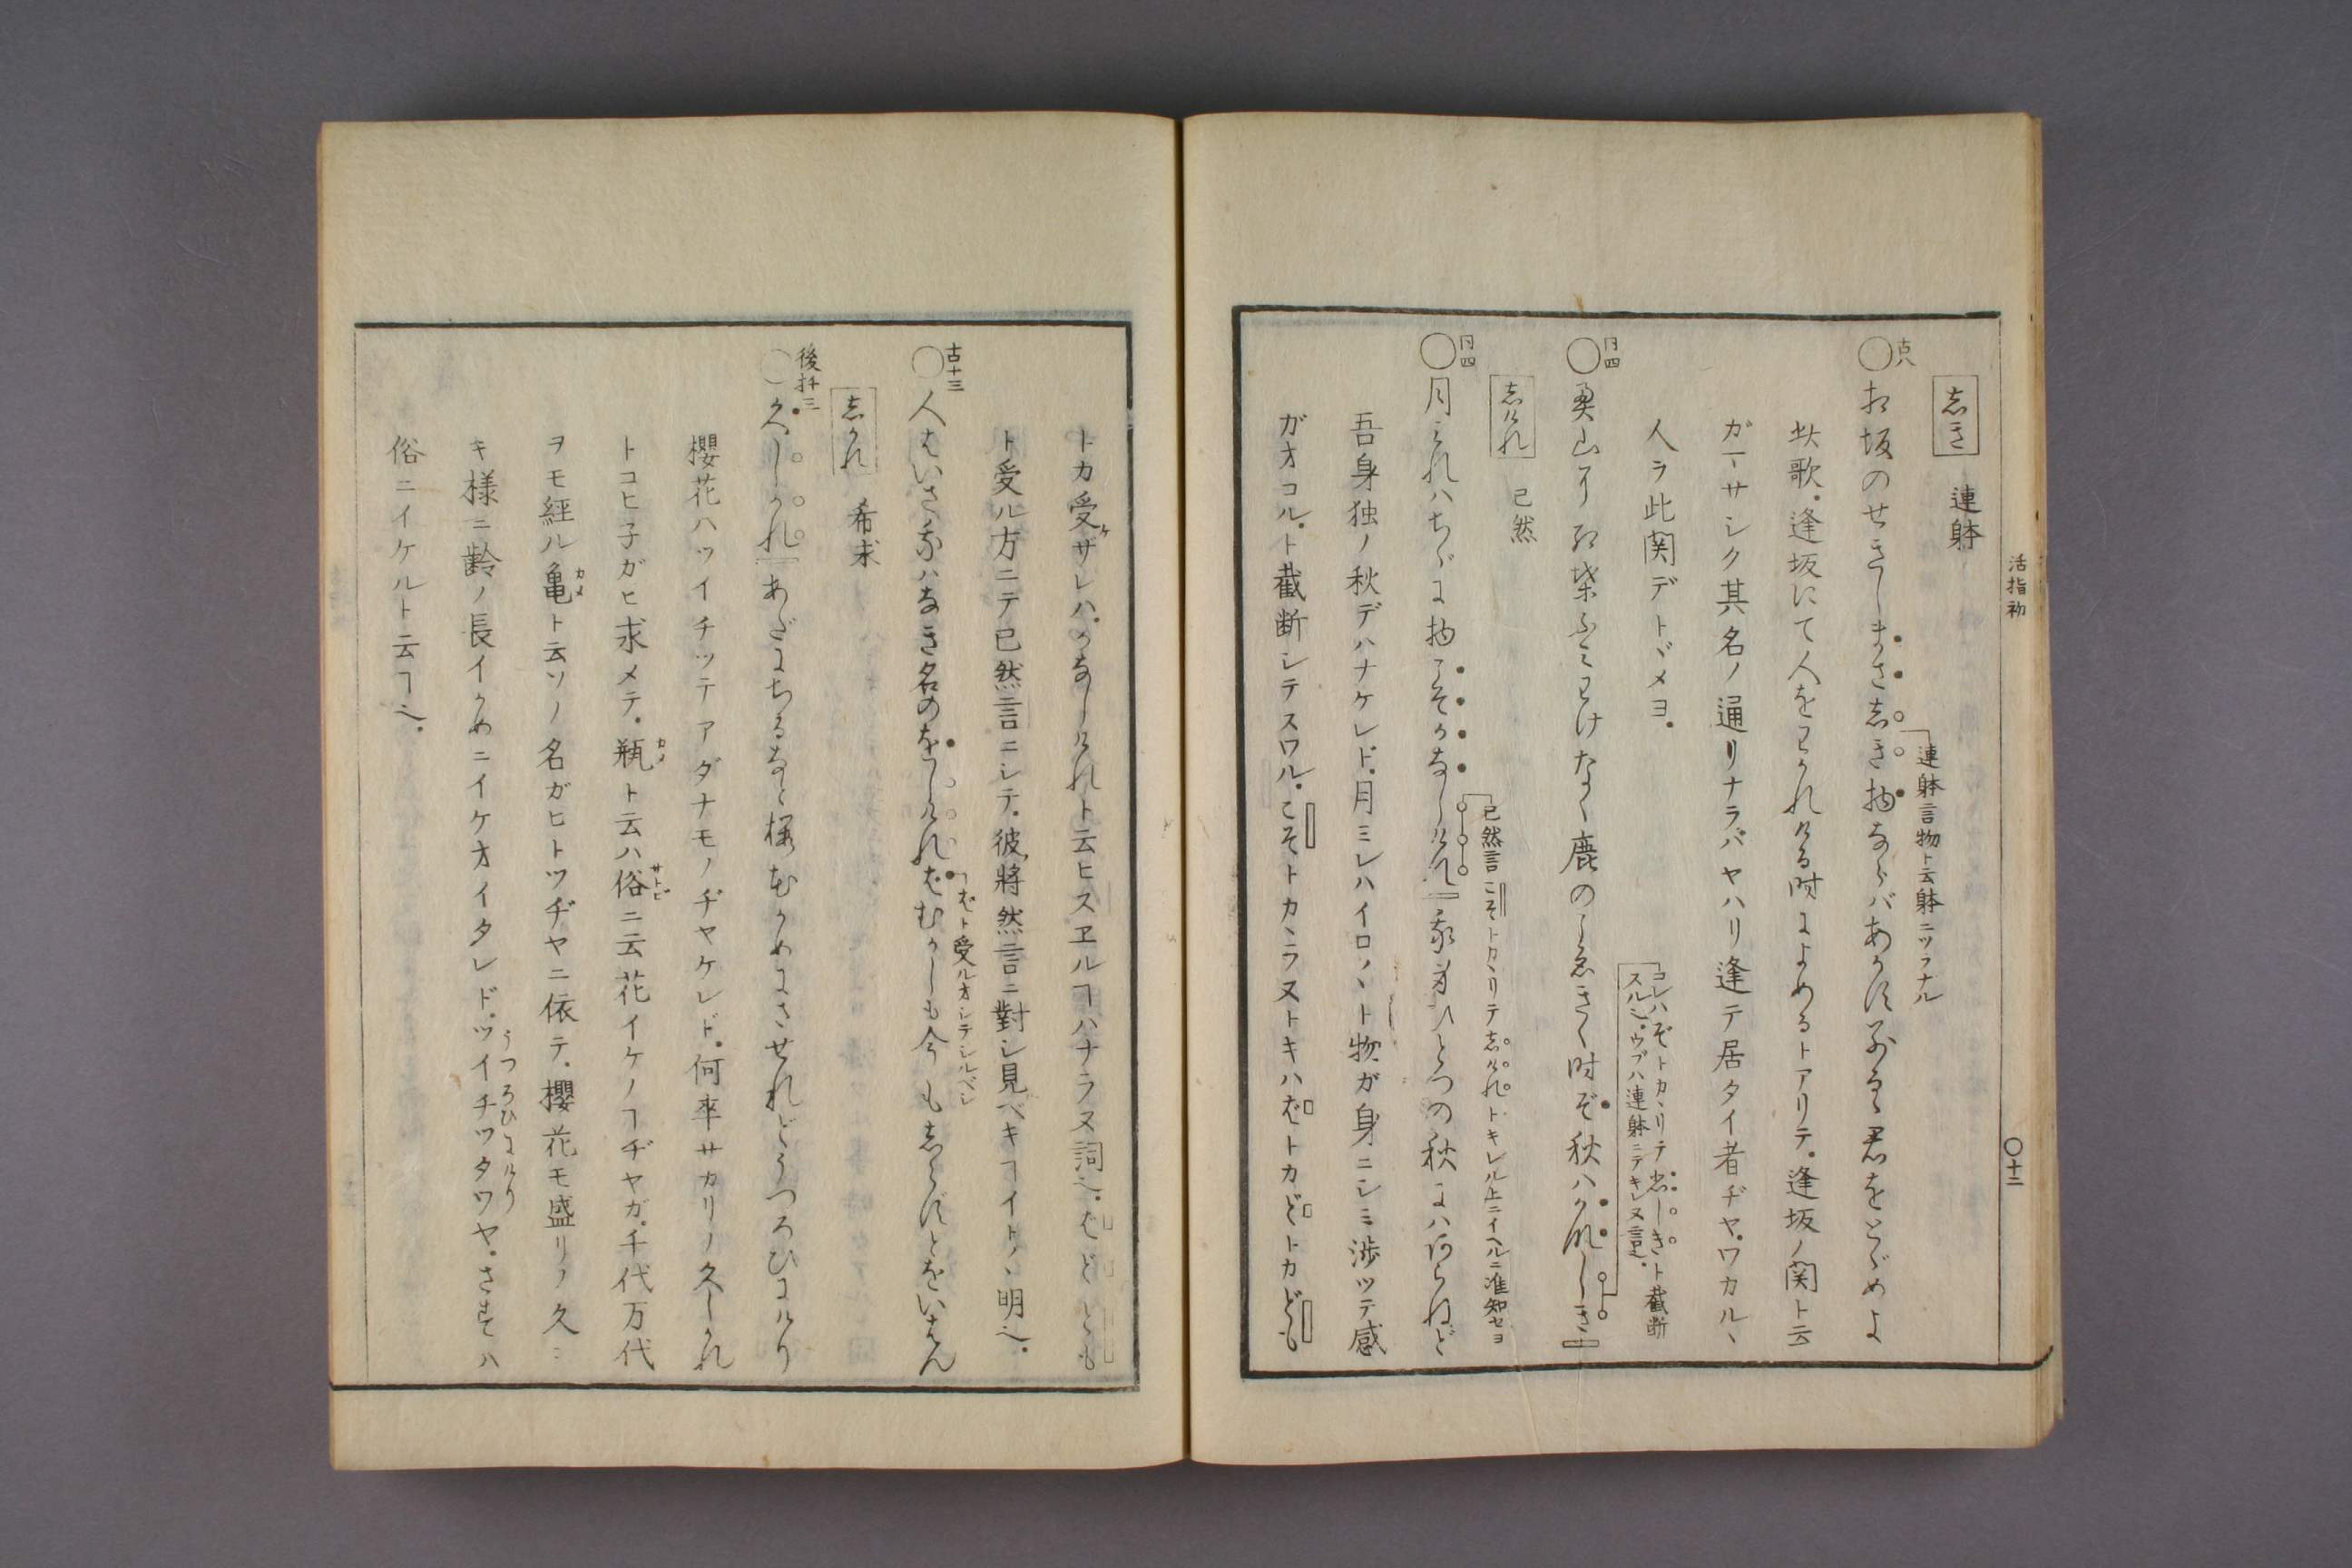 活指初
〇十二
志き 連躰
古八
〇相坂のせきしまさ志き物ならバあかず別るゝ君をとゞめよ
連躰言物ト云躰ニツラナル
此歌。逢坂にて人をわかれける時によめるトアリテ。逢坂ノ関ト云
ガマサシク其名ノ通リナラバヤハリ逢テ居タイ者ヂヤ。ワカルヽ
人ヲ此関デトヾメヨ。
同四
〇奥山に紅葉ふミわけなく鹿のこゑきく時ぞ秋ハかなしき
コレハぞトカヽリテ悲しきト截断
スル也。ウブハ連躰ニテキレヌ言也。
志けれ 已然
同四
〇月ミれハちゞに物こそかなしけれ我身ひとつの秋にハあらねど
已然言こそトカヽリテ志けれトキレル上ニイヘルニ准知セヨ
吾身独ノ秋デハナケレド。月ミレハイロ〳〵ト物ガ身ニシミ渉ツテ感
ガオコル。ト截断シテスワル。こそトカヽラヌトキハばトカどトカども
トカ受ザレハ。かなしけれト云ヒスヱルヿハナラヌ詞也。ばどども
ケ
ト受ル方ニテ已然言ニシテ。彼将然言ニ對シ見ベキヿイト〳〵明也。
古十三
〇人はいさ我ハなき名のをしけれバむかしも今も志らずとをいはん
ばト受ル方シテシルベシ
志かれ 希求
後廾三
〇久しかれあだにちるなと桜むかめにさせれどうつろひにけり
櫻花ハツイチツテアダナモノヂヤケレド。何卒サカリノ久しかれ
トコヒ子ガヒ求メテ。瓶ト云ハ俗ニ云花イケノヿヂヤガ。千代万代
カメ
サトビ
ヲモ經ル亀ト云ソノ名ガヒトツヂヤニ依テ。櫻花モ盛リノ久シ
カメ
キ様ニ齢ノ長イかめニイケオイタレド。ツイチツタワヤ。さすハ
うつろひにけり
俗ニイケルト云ヿ也。